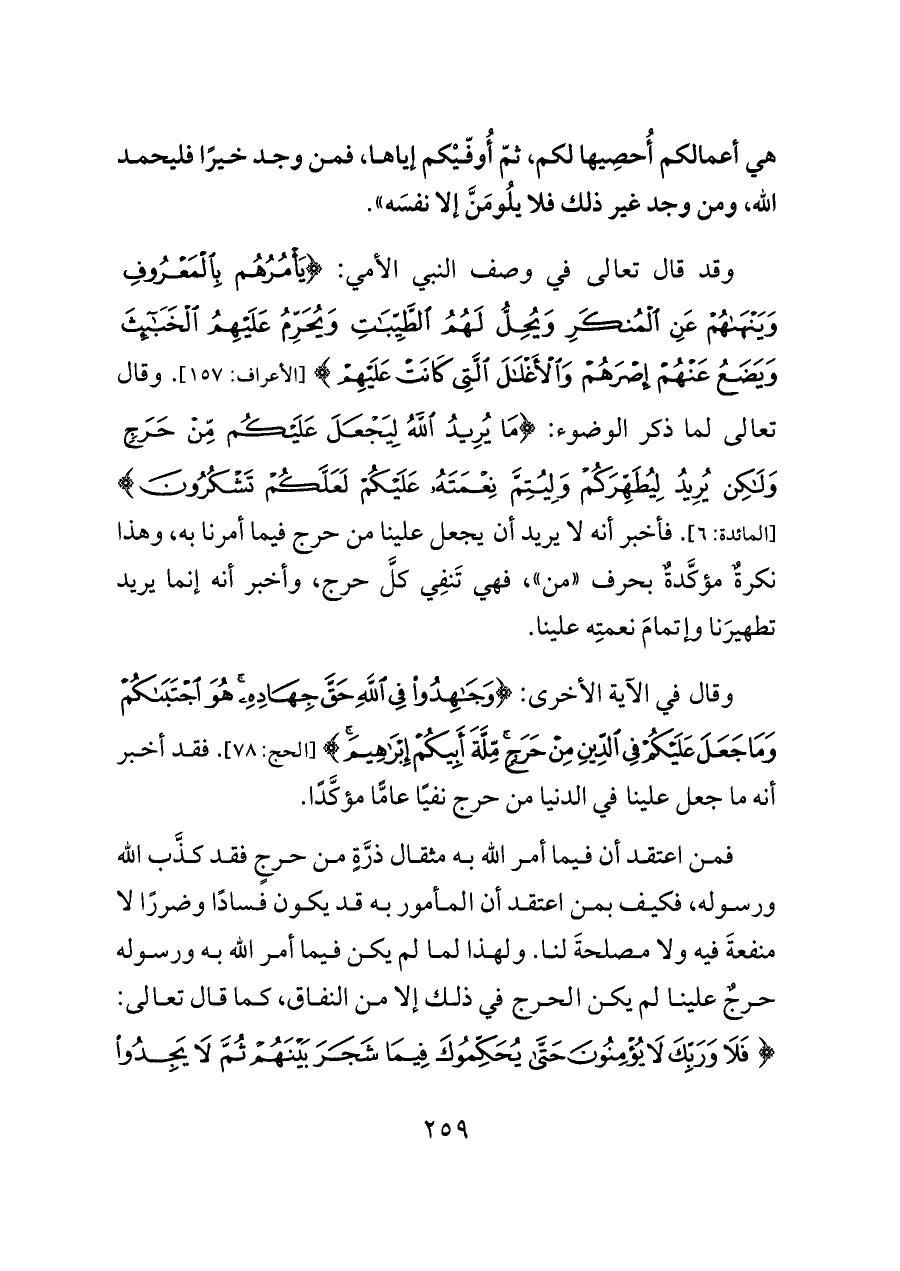 هي أعمالكم أُحصِيها لكم، ثمّ أُوفّيْكم إياها، فمن وجد خيرًا فليحمد
الله، ومن وجد غير ذلك فلا يلُومَنَّ إلا نفسَه».
وقد قال تعالى في وصف النبي الأمي: ﴿يَأۡمُرُهُم بِٱلۡمَعۡرُوفِ
وَيَنۡهَىٰهُمۡ عَنِ ٱلۡمُنكَرِ وَيُحِلُّ لَهُمُ ٱلطَّيِّبَٰتِ وَيُحَرِّمُ عَلَيۡهِمُ ٱلۡخَبَٰٓئِثَ
وَيَضَعُ عَنۡهُمۡ إِصۡرَهُمۡ وَٱلۡأَغۡلَٰلَ ٱلَّتِي كَانَتۡ عَلَيۡهِمۡ﴾ [الأعراف: ١٥٧]. وقال
تعالى لما ذكر الوضوء: ﴿مَا يُرِيدُ ٱللَّهُ لِيَجۡعَلَ عَلَيۡكُم مِّنۡ حَرَجٖ
وَلَٰكِن يُرِيدُ لِيُطَهِّرَكُمۡ وَلِيُتِمَّ نِعۡمَتَهُۥ عَلَيۡكُمۡ لَعَلَّكُمۡ تَشۡكُرُونَ﴾
[المائدة: ٦]. فأخبر أنه لا يريد أن يجعل علينا من حرج فيما أمرنا به، وهذا
نكرةٌ مؤكَّدةٌ بحرف «من»، فهي تَنفِي كلَّ حرج، وأخبر أنه إنما يريد
تطهيرَنا وإتمامَ نعمتِه علينا.
وقال في الآية الأخرى: ﴿وَجَٰهِدُواْ فِي ٱللَّهِ حَقَّ جِهَادِهِۦۚ هُوَ ٱجۡتَبَىٰكُمۡ
وَمَا جَعَلَ عَلَيۡكُمۡ فِي ٱلدِّينِ مِنۡ حَرَجٖۚ مِّلَّةَ أَبِيكُمۡ إِبۡرَٰهِيمَۚ﴾ [الحج: ٧٨]. فقد أخبر
أنه ما جعل علينا في الدنيا من حرج نفيًا عامًّا مؤكَّدًا.
فمن اعتقد أن فيما أمر الله به مثقال ذرَّةٍ من حرجٍ فقد كذَّب الله
ورسوله، فكيف بمن اعتقد أن المأمور به قد يكون فسادًا وضررًا لا
منفعةَ فيه ولا مصلحةَ لنا. ولهذا لما لم يكن فيما أمر الله به ورسوله
حرجٌ علينا لم يكن الحرج في ذلك إلا من النفاق، كما قال تعالى:
﴿فَلَا وَرَبِّكَ لَا يُؤۡمِنُونَ حَتَّىٰ يُحَكِّمُوكَ فِيمَا شَجَرَ بَيۡنَهُمۡ ثُمَّ لَا يَجِدُواْ
٢٥٩